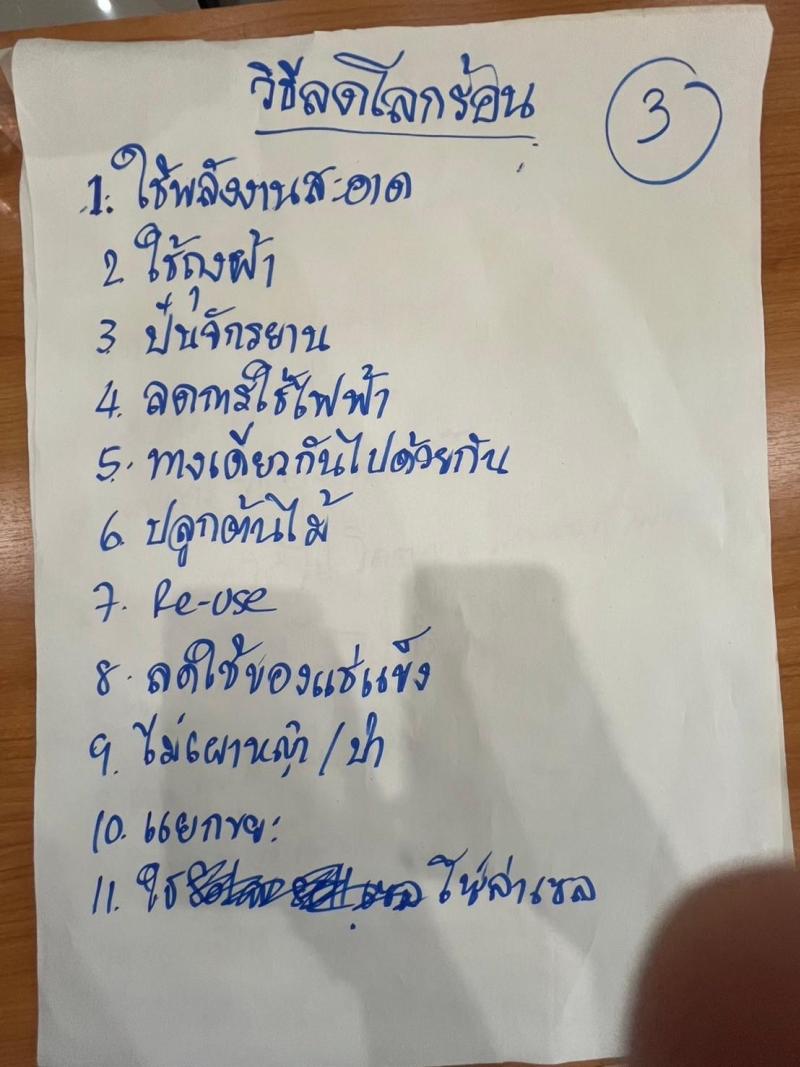 วิธีลดโลกร้อน
3
1. ใช้พลังงานสะอาด
2 ใช้ถุงผ้า
3 ปั่นจักรยาน
4. ลดการใช้ไฟฟ้า
5. ทางเดียวกันไปด้วยกัน
6. ปลูกต้นไม้
7. Re-use
8. ลดใช้ของแช่แข็ง
9. ไม่เผาหญ้า / ป่า
10. แยกขยะ
11. ใช้ โซล่าเซล